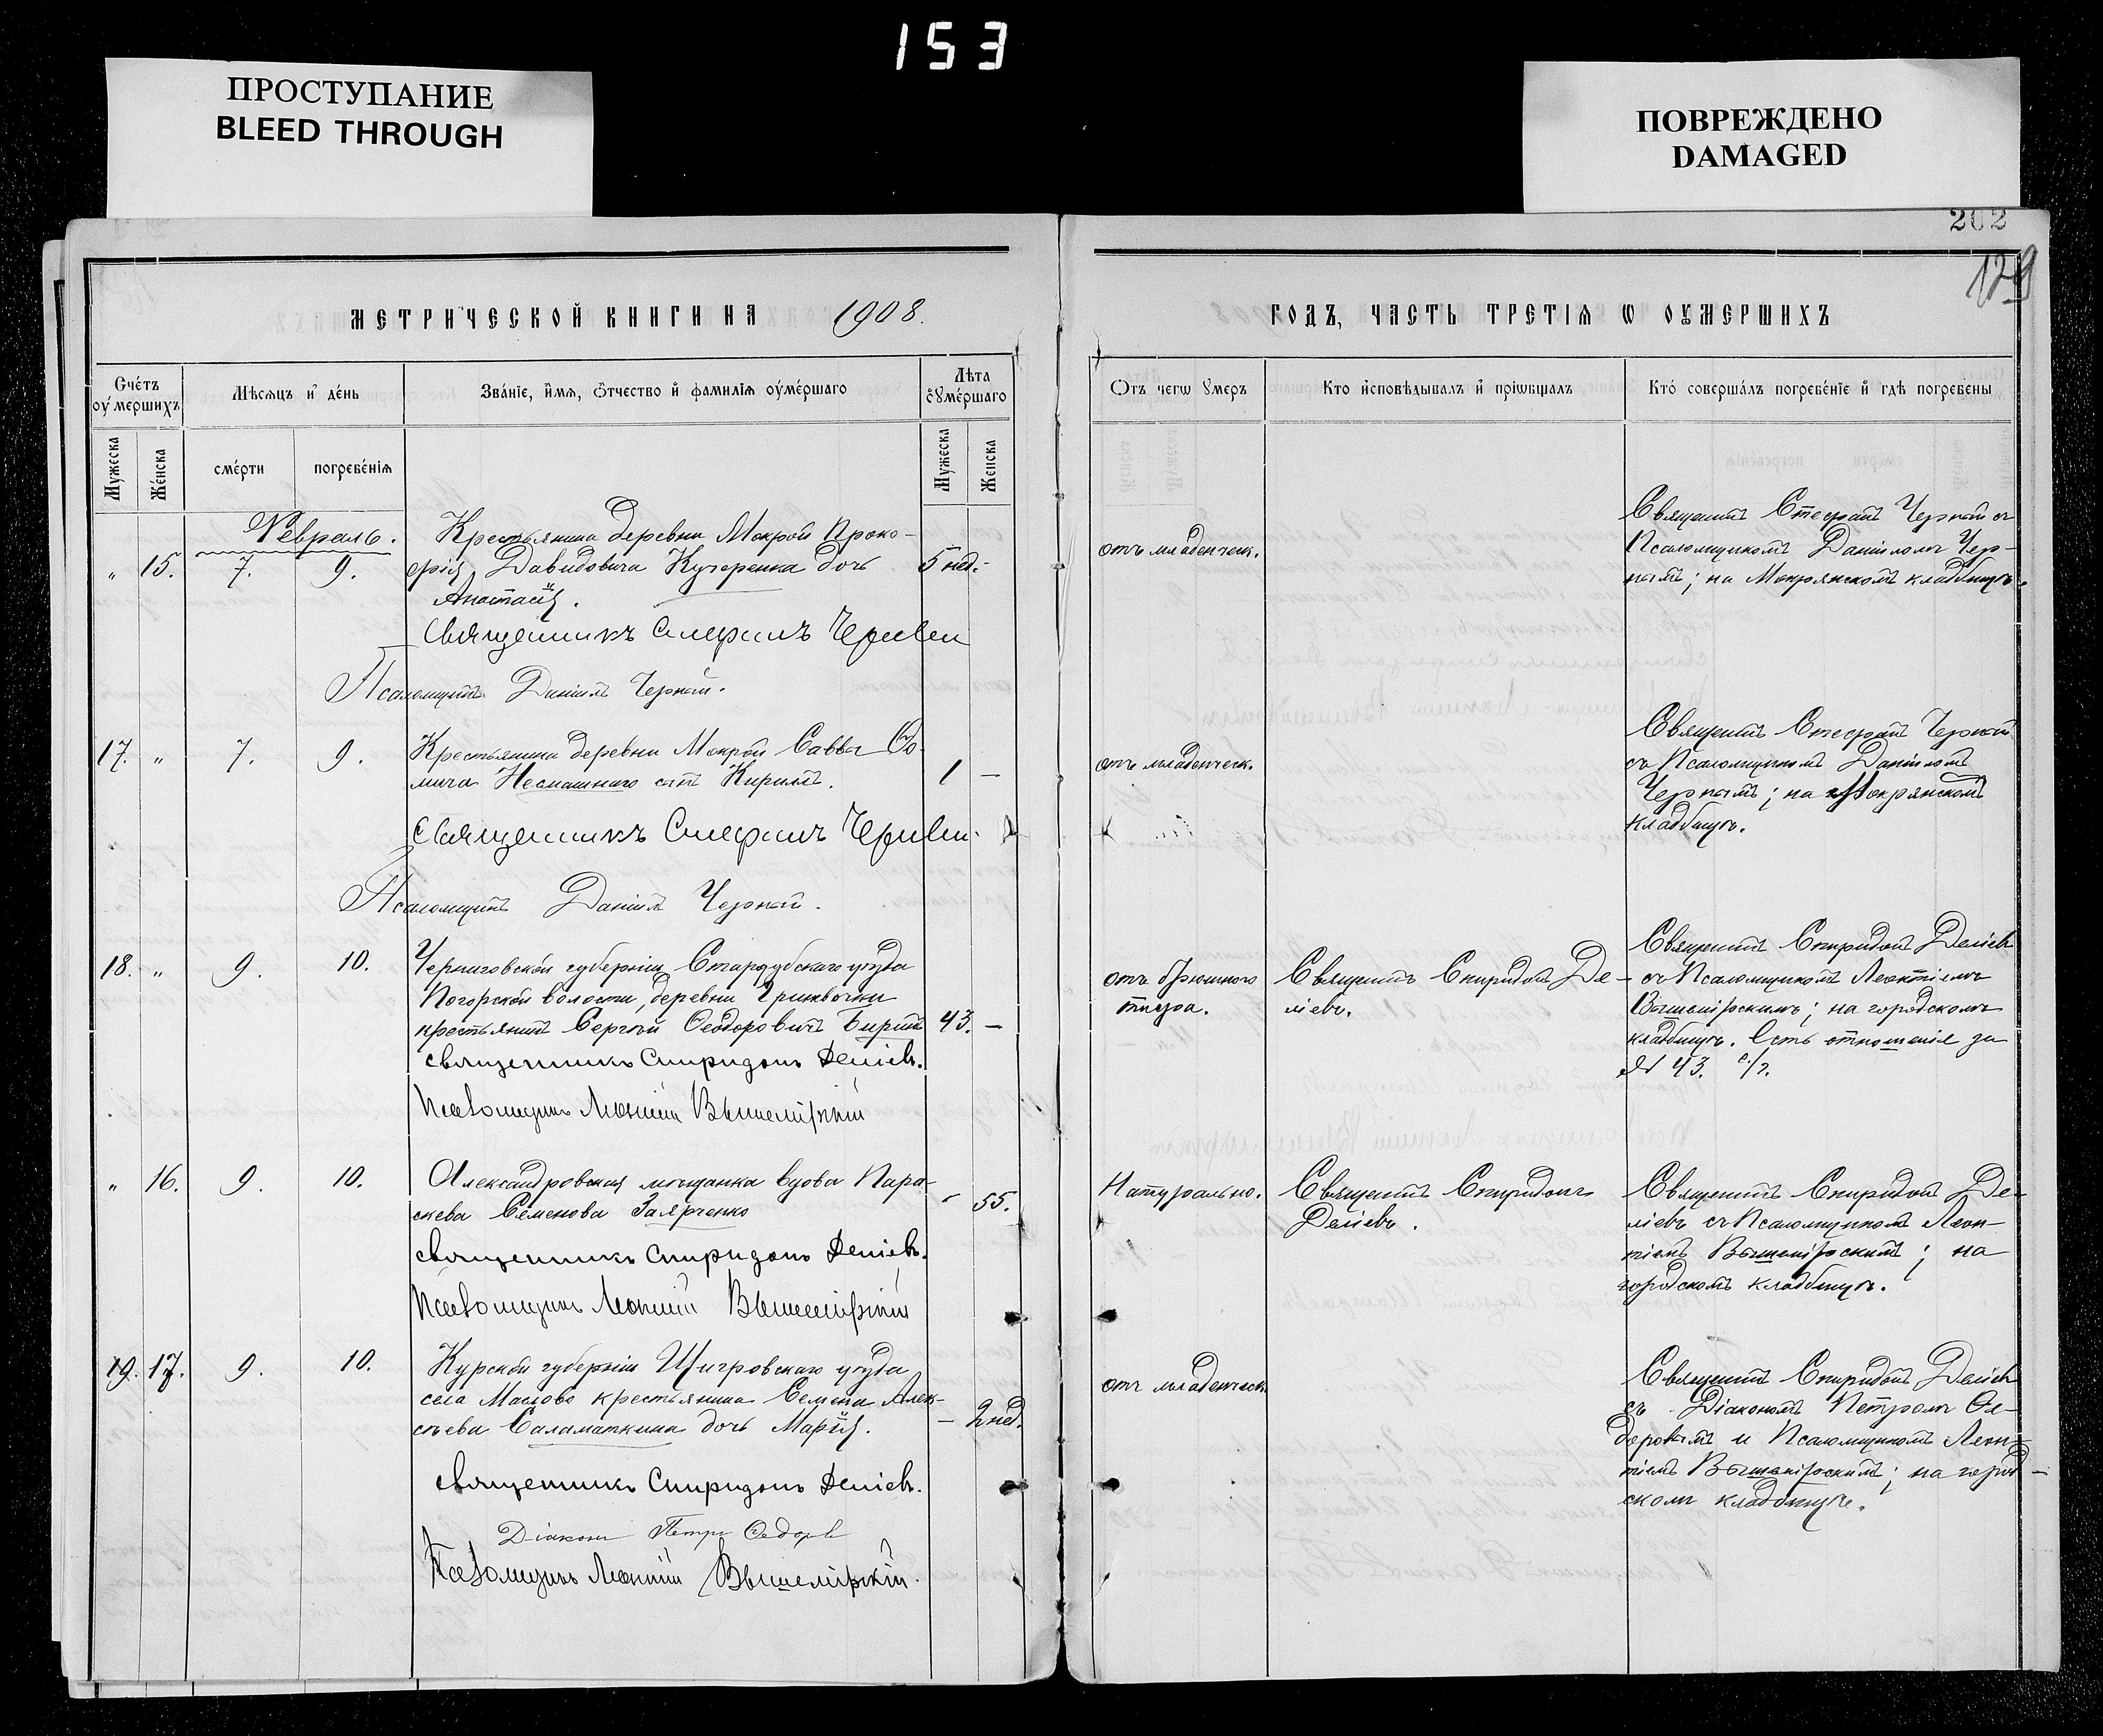 153
ПРОСТУПАНИЕ
BLEED THROUGH
ПОВРЕЖДЕНО
DAMAGED
202
129
МЕТРИЧЕСКОЙ КНИГИ НА 1908.
ГОДЪ, ЧАСТЬ ТРЕТІѦ Ѡ ОУМЕРШИХЪ
Счетъ оумершихъ
Мѣсѧцъ и день
Званіе, имѧ, отчество и фамиліѧ оумершаго
Лѣта оумершаго
Отъ чегѡ умеръ
Кто исповѣдывалъ и пріѡбщалъ
Кто совершалъ погребеніе и гдѣ погребены
Мужеска
Женска
смерти
погребеніѧ
Мужеска
Женска
Февраль.
" 15. 7. 9.
Крестьянина деревни Мокрой Проко-
фія Давидовича Кучеренка дочь
Анастасія.
5 нед.-
отъ младенческ.
Священникъ Стефанъ Черной съ
Псаломщикомъ Даніиломъ Чер-
нымъ; на Мокрянскомъ кладбищѣ.
Священникъ Стефанъ Черней
Псаломщикъ Даніилъ Черной.
17. " 7. 9.
Крестьянина деревни Мокрой Саввы Ѳо-
мича Несмашнаго сынъ Кириллъ.
1 —
отъ младенческ.
Священникъ Стефанъ Черной
съ Псаломщикомъ Даніиломъ
Чернымъ; на Мокрянскомъ
кладбищѣ.
Священникъ Стефанъ Черней.
Псаломщикъ Даніилъ Черной.
18. " 9. 10.
Черниговской губерніи Стародубскаго уѣзда
Погорской волости, деревни Гриневочки
крестьянинъ Сергѣй Ѳеодоровичъ Биринъ
43. —
отъ брюшного
тифа.
Священникъ Спиридонъ Де-
ліевъ.
Священникъ Спиридонъ Деліевъ
съ Псаломщикомъ Леонтіемъ
Вышемірскимъ; на городскомъ
кладбищѣ. Есть отношеніе за
№ 43. с/г.
священникъ Спиридонъ Деліевъ.
Псаломщикъ Леонтій Вышемірскій
" 16. 9. 10.
Александровская мѣщанка вдова Пара-
скева Семенова Заярченко
- 55.
Натурально.
Священникъ Спиридонъ
Деліевъ.
Священникъ Спиридонъ Де-
ліевъ съ Псаломщикомъ Леон-
тіемъ Вышемірскимъ; на
городскомъ кладбищѣ.
священникъ Спиридонъ Деліевъ.
Псаломщикъ Леонтій Вышемірскій
19. 17. 9. 10.
Курской губерніи Щигровскаго уѣзда
села Маслово крестьянина Семена Алек-
сѣева Саламаткина дочь Марія.
— 2 нед.
отъ младенческ.
Священникъ Спиридонъ Деліевъ
съ Діакономъ Петромъ Ѳе-
доровымъ и Псаломщикомъ Леон-
тіемъ Вышемірскимъ; на город-
скомъ кладбищѣ.
священникъ Спиридонъ Деліевъ.
Діаконъ Петръ Ѳедоровъ
Псаломщикъ Леонтій Вышемірскій.